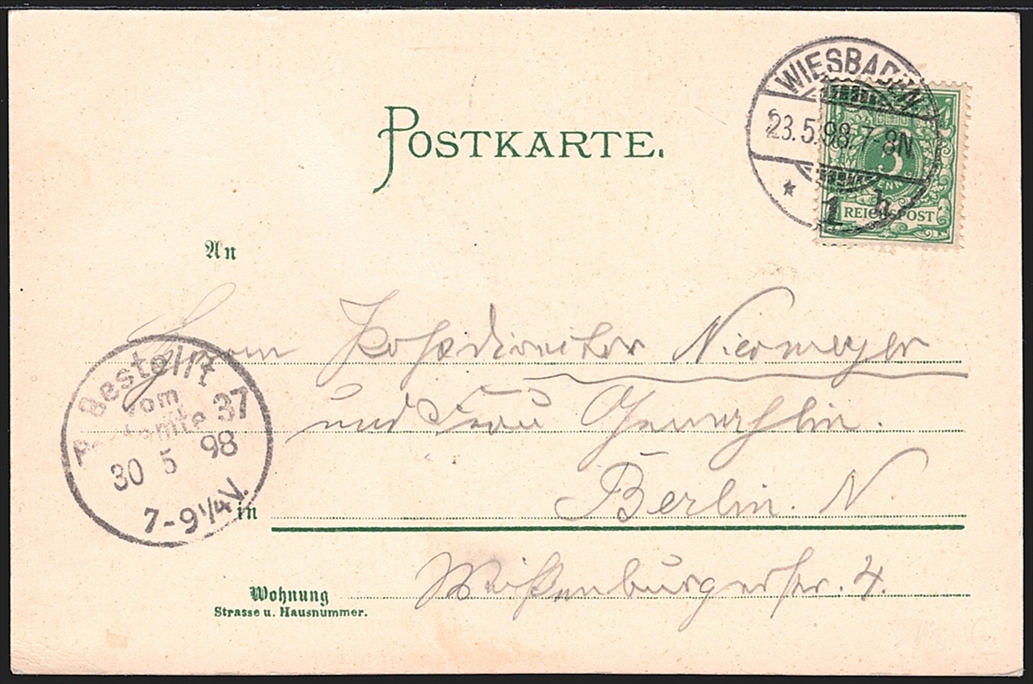 POSTKARTE.
WIESBADEN
23.5.98.7-8N
* 1 b
5
REICHSPOST
An
Herrn Postdirektor Niemeyer
und Frau Gemahlin.
Bestellt
vom
Postamte 37
30 5 98
7-9 1/4 V.
in Berlin. N.
Weißenburgerstr. 4.
Wohnung
Strasse u. Hausnummer.